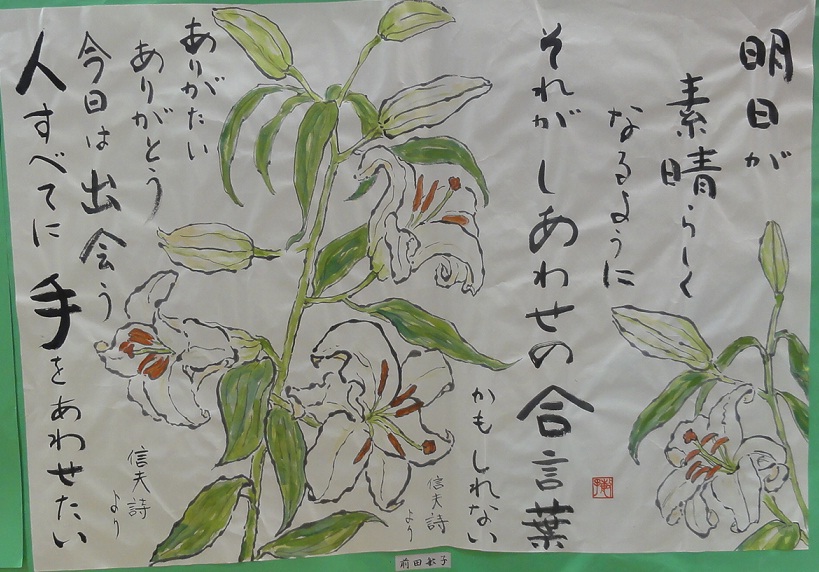 明日が
素晴らしく
なるように
それが しあわせの 合言葉
かもしれない
信夫詩
より
ありがたい
ありがとう
今日は 出会う
人すべてに 手をあわせたい
信夫詩
より
前田敏子